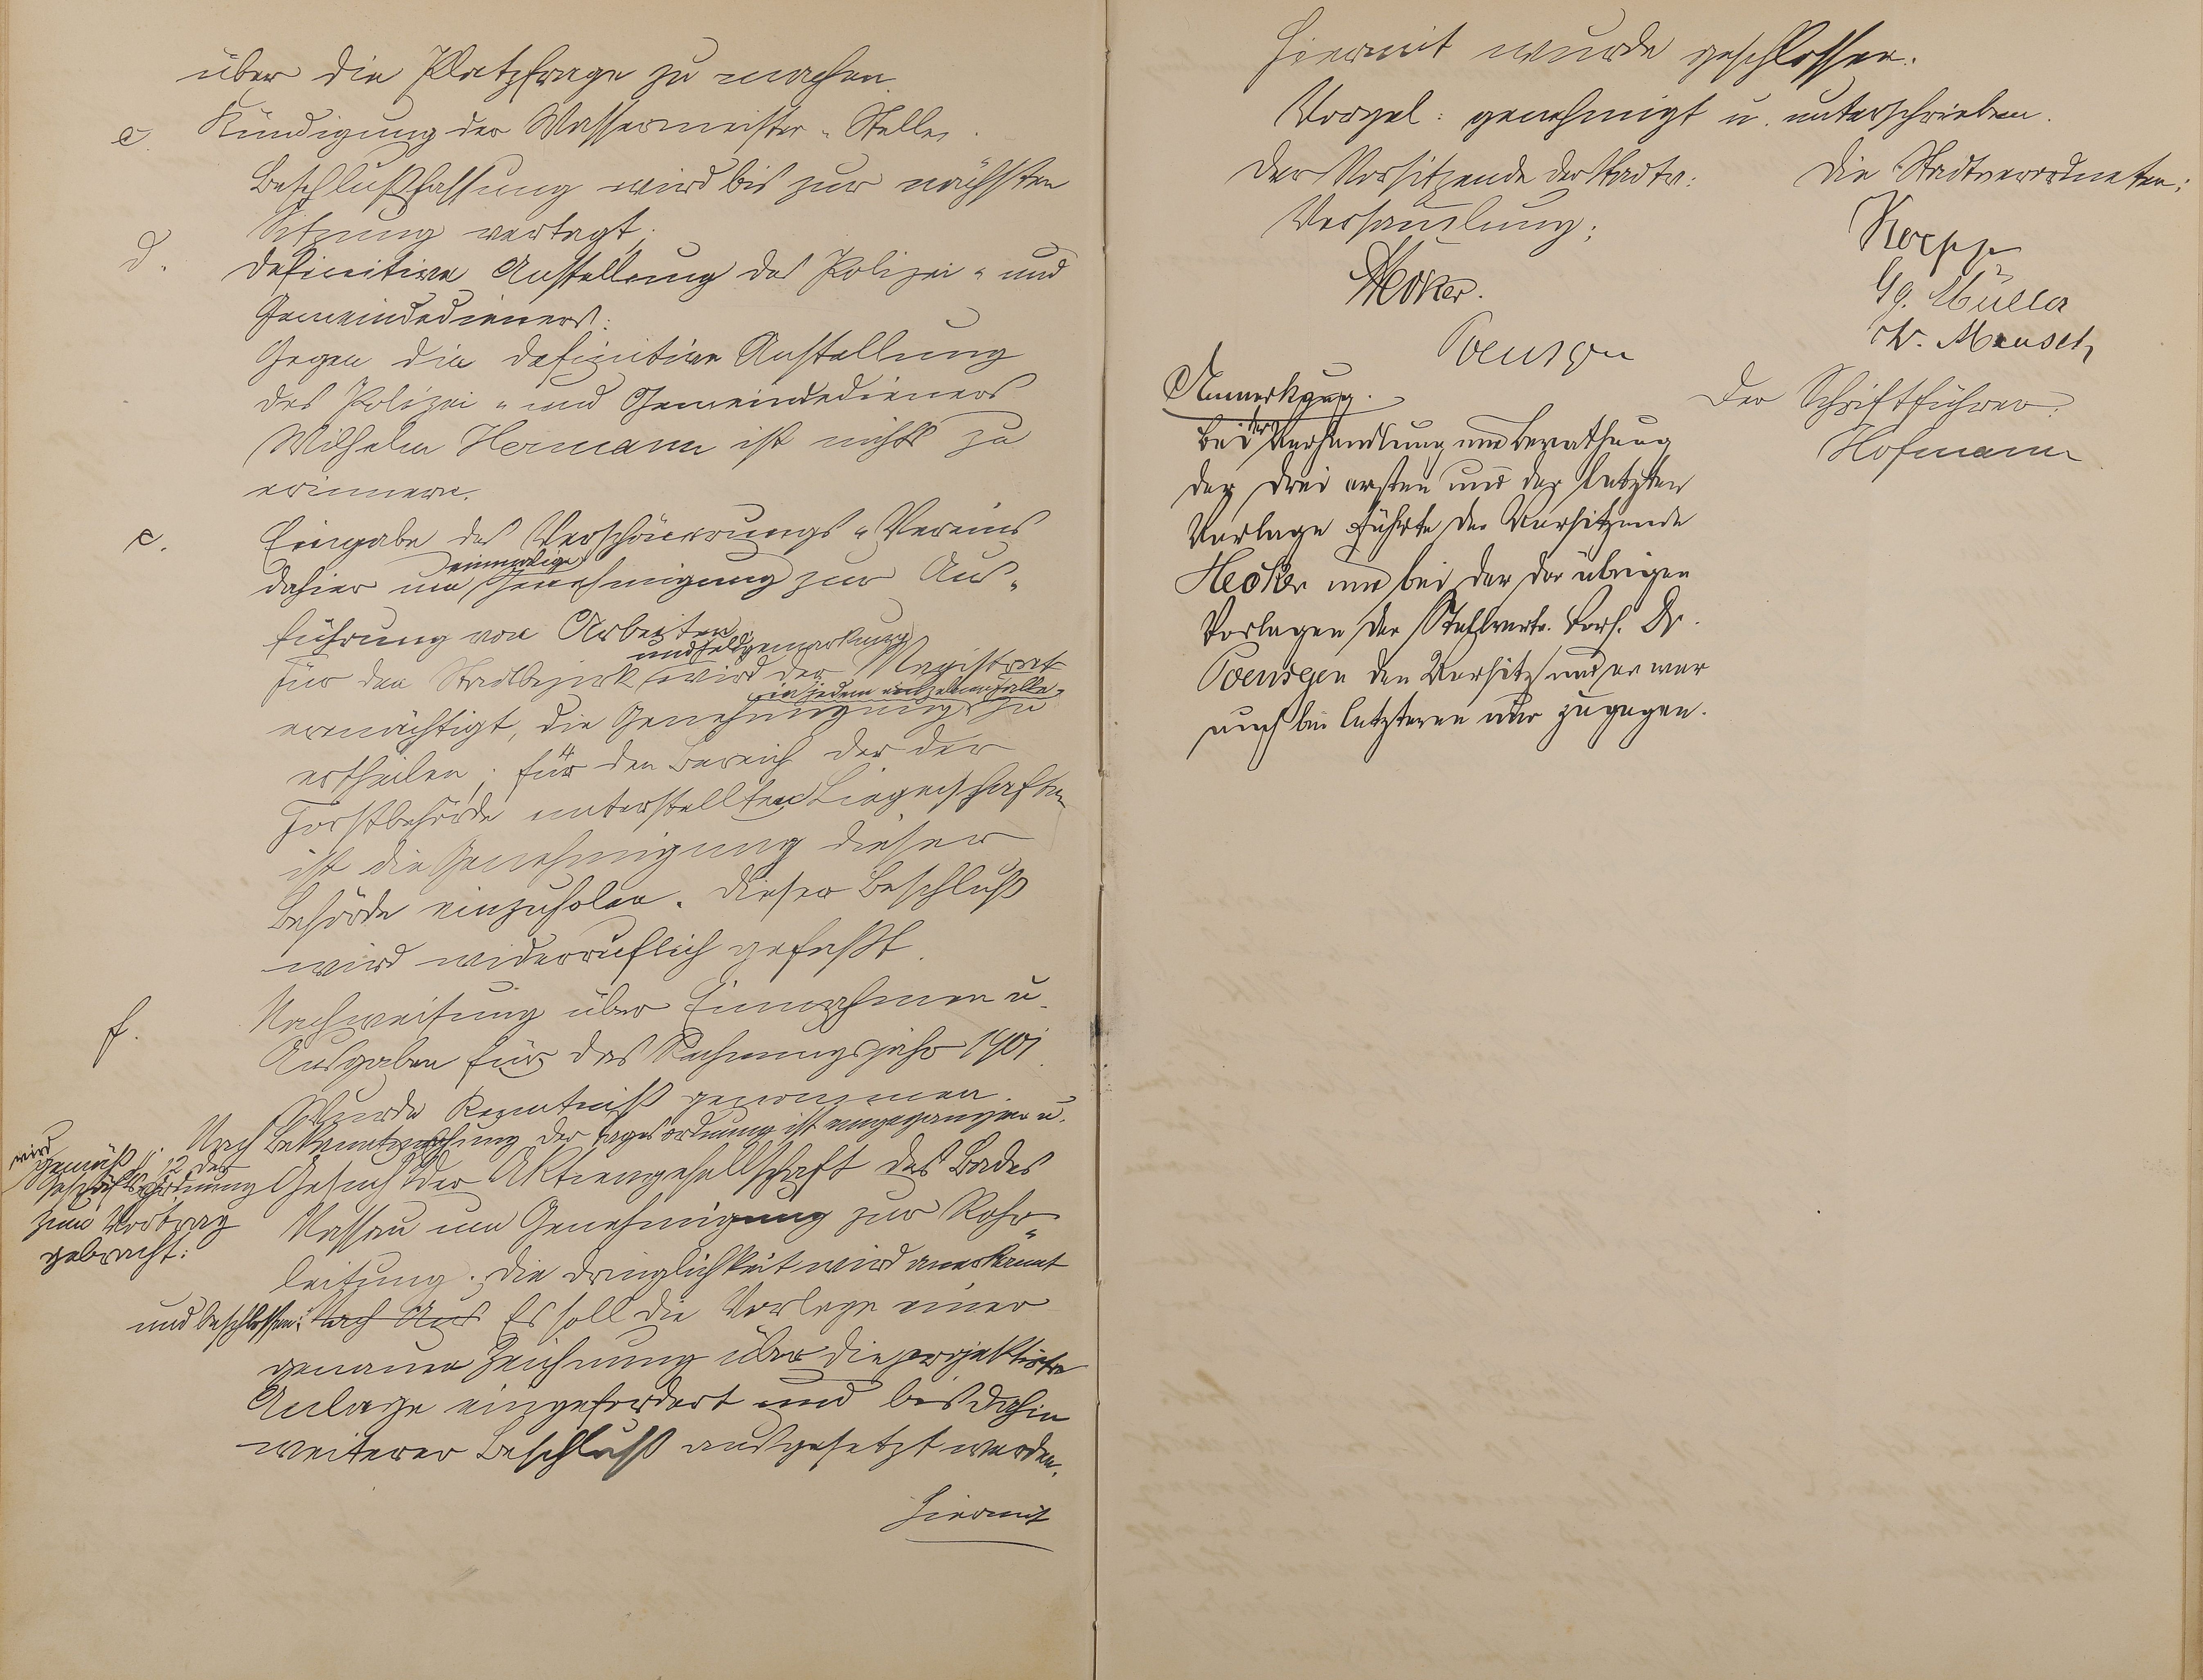 über die Platzfrage zu machen.
c. Kündigung der Wassermeister-Stelle.
Beschlußfassung wird bis zur nächsten
Sitzung vertagt.
d. Definitive Anstellung des Polizei- und
Gemeindedieners:
Gegen die definitive Anstellung
des Polizei- und Gemeindedieners
Wilhelm Hermann ist nichts zu
erinnern.
e. Eingabe des Verschönerungs-Vereins
dahier um einmalige Genehmigung zur Aus-
führung von Arbeiten.
Für den Stadtbezirk und Feldgemarkung wird der Magistrat
ermächtigt, die Genehmigung in jedem einzelnen Falle zu
ertheilen; für den Bereich der der
Forstbehörde unterstellten Liegenschaften
ist die Genehmigung dieser
Behörde einzuholen. Dieser Beschluß
wird widerruflich gefaßt.
f. Nachweisung über Einnahmen u.
Ausgaben für das Rechnungsjahr 1901.
Wurde Kenntniß genommen.
Nach Bekanntmachung der Tagesordnung ist eingegangen u.
wird gemäß § 12 der
Geschäftsordnung
zum Vortrag
gebracht:
Gesuch der Aktiengesellschaft des Bades
Nassau um Genehmigung zur Rohr-
leitung. Die Dringlichkeit wird anerkannt
und beschlossen: Nach Aus Es soll die Vorlage einer
genauen Zeichnung über die projektirte
Anlage eingefordert und bis dahin
weiterer Beschluß ausgesetzt werden.
Hiermit
Hiermit wurde geschlossen.
Vorgel: genehmigt u. unterschrieben.
Der Vorsitzende der Stadtv:
Versammlung:
Hecker.
Poensgen
Die Stadtverordneten:
Kopp
Gg. Müller
W. Mensch
Der Schriftführer:
Hofmann
Anmerkung.
Bei der Verhandlung und Berathung
der drei ersten und der letzten
Vorlage führte der Vorsitzende
Hecker und bei der der übrigen
Vorlagen der Stellvertr. Vors. Dr.
Poensgen den Vorsitz und er war
auch bei letzteren nur zugegen.